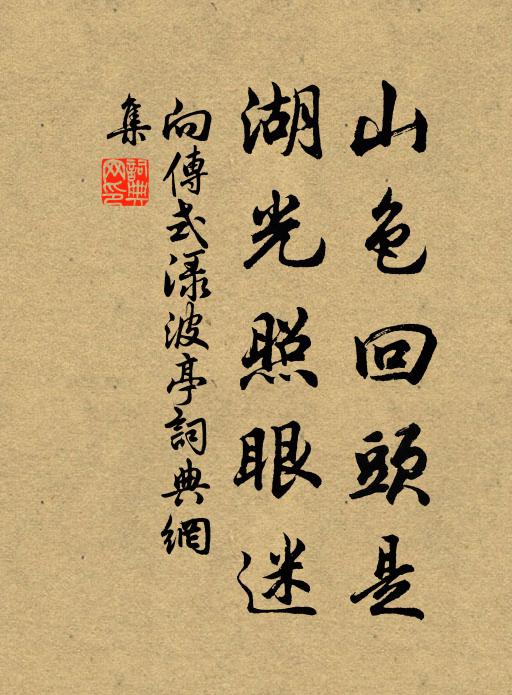 山色回頭是
湖光照眼迷
向傳式漾波亭詞典網
集
詞典
网印